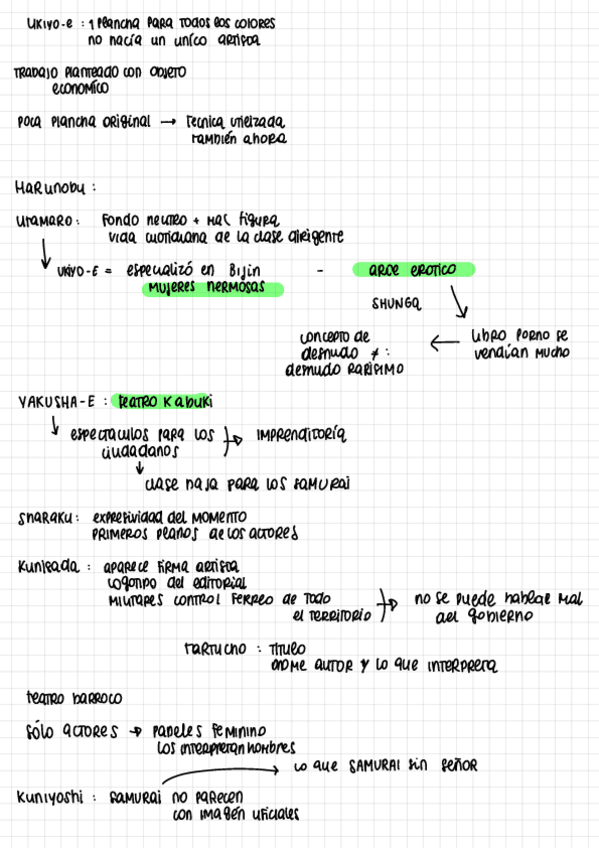 UKIYO-e : 1 plancha PARA TODOS los COLORES
no nacía un unico artista
TRABAJO planteado con objeto
económico
poca plancha original → Tecnica utilizada
también ahora
Harunobu :
Utamaro : Fondo neutro + Mac figura
vida cuotidiana de la clase dirigente
↓ UKIYO-E = especializó en Bijin - arce erotico
Mujeres hermosas
SHUNGA
concepto de ← libro porno se
desnudo ≠ : vendían mucho
desnudo rarisimo
YAKUSHA-E : teatro Kabuki
↳ espectaculos para los → IMPRENDITORÍA
ciudadanos
↓
clase baja para los samurai
Sharaku : expresividad del MOMENTO
PRIMEROS planos de los actores
Kunisada : aparece firma artista
logotipo del editorial
militares control ferreo de todo → no se puede hablar mal
el territorio del gobierno
tartucho : título
nome autor y lo que interpreta
teatro barroco
sólo actores → papeles feminino
los interpretan hombres
lo que SAMURAI sin señor
Kuniyoshi : samurai no parecen
con imagén uficiales